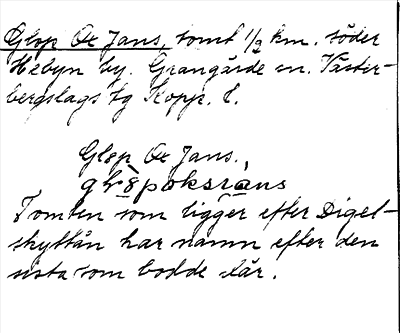 Glop Ol Jans, tomt 1/2 km. söder
Hebyn by. Grangärde sn. Väster-
bergslags tg Kopp. l.
Glop Ol Jans.
Tomten som ligger efter Digel-
skyttån har namn efter den
sista som bodde där.